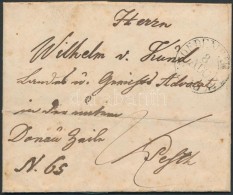 Herrn
Wilhelm v.
Landes u. Gerichts Advocat
in der untern
Donau Zeile
N. 65
Pesth